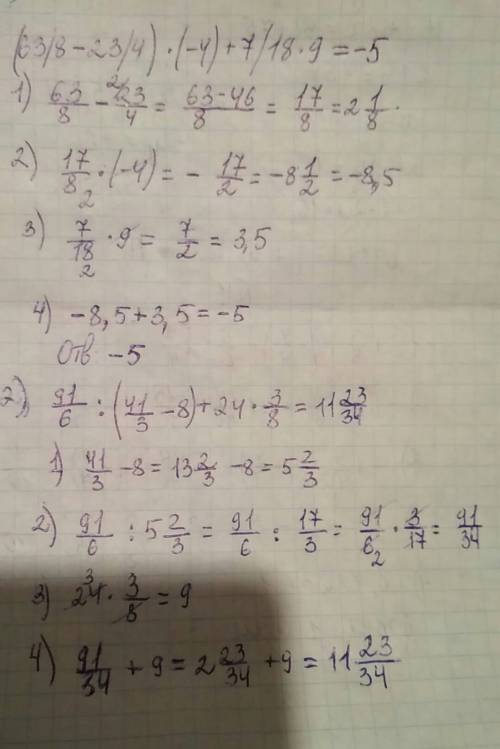 (63/8 - 23/4) · (-4) + 7/18 · 9 = -5
1) 63/8 - ²⁾23/4 = (63-46)/8 = 17/8 = 2 1/8 ·
2) 17/8₂ · (-4) = - 17/2 = -8 1/2 = -8,5
3) 7/18₂ · 9 = 7/2 = 3,5
4) -8,5 + 3,5 = -5
Отв -5
2), 91/6 : (41/3 - 8) + 24 · 3/8 = 11 23/34
1) 41/3 - 8 = 13 2/3 - 8 = 5 2/3
2) 91/6 : 5 2/3 = 91/6 : 17/3 = 91/6₂ · 3/17 = 91/34
3) ³24 · 3/8 = 9
4) 91/34 + 9 = 2 23/34 + 9 = 11 23/34